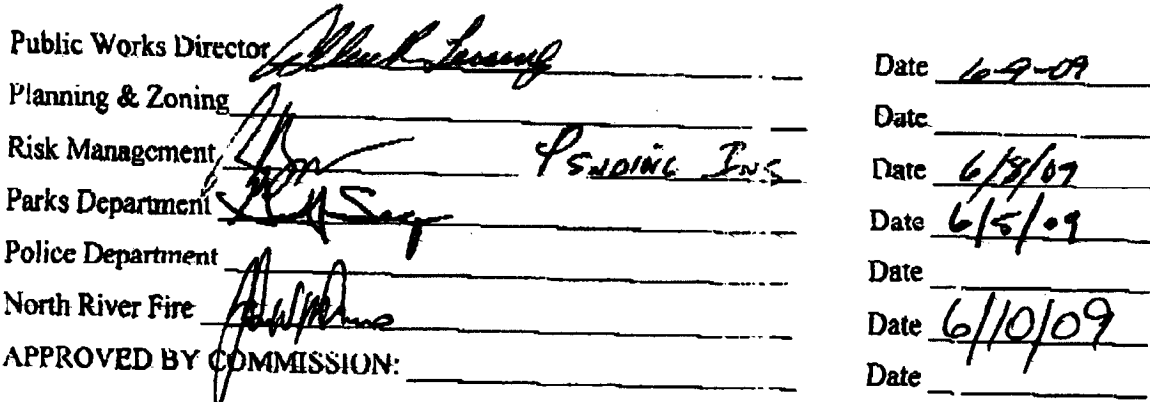 Public Works Director Date 6-9-09
Planning & Zoning Date
Risk Management Pending Ins Date 6/8/09
Parks Department Date 6/5/09
Police Department Date
North River Fire Date 6/10/09
APPROVED BY COMMISSION: Date